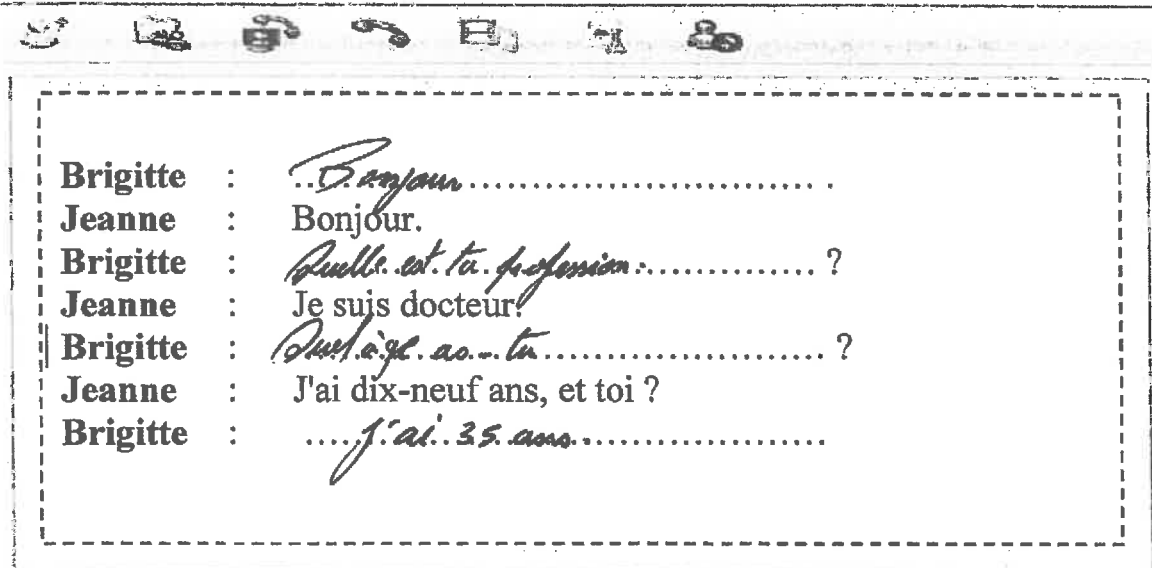 Brigitte : Bonjour .
Jeanne : Bonjour.
Brigitte : Quelle est ta profession ?
Jeanne : Je suis docteur.
Brigitte : Quel âge as-tu ?
Jeanne : J'ai dix-neuf ans, et toi ?
Brigitte : j'ai 35 ans